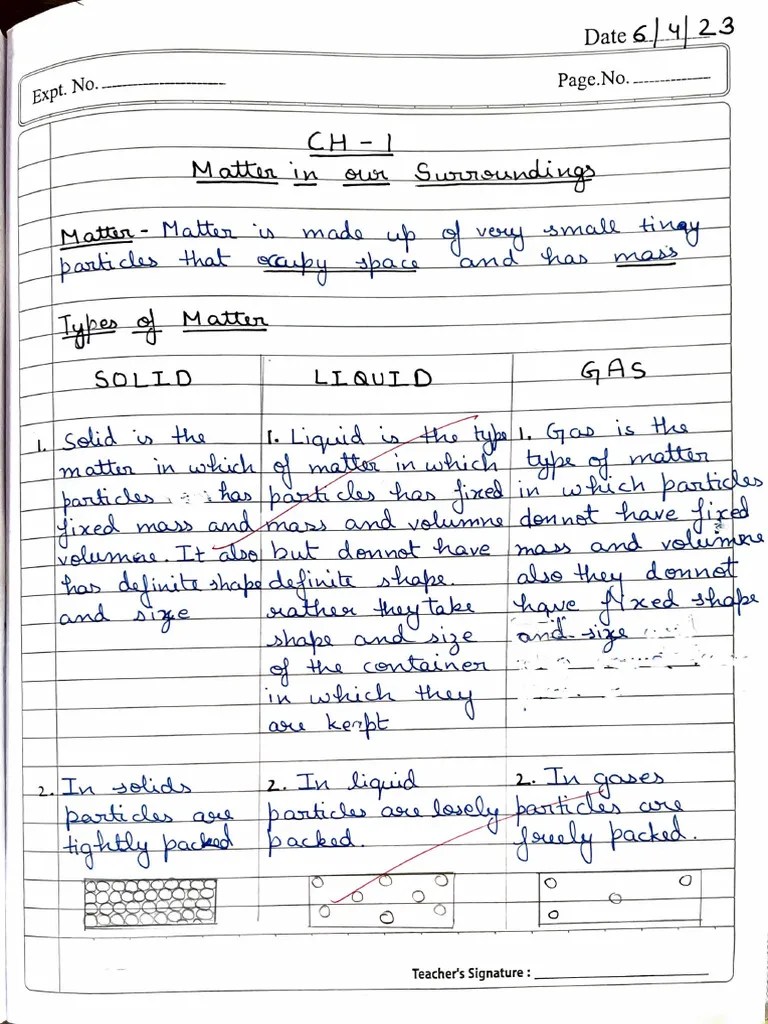 Date 6/4/23
Expt. No.
Page.No.
CH - 1
Matter in our Surroundings
Matter - Matter is made up of very small tingy
particles that occupy space and has mass
Types of Matter
SOLID
1. Solid is the
matter in which
particles has
fixed mass and
volumne. It also
has definite shape
and size
2. In solids
particles are
tightly packed
LIQUID
1. Liquid is the type
of matter in which
particles has fixed
mass and volumne
but donnot have
definite shape.
rather they take
shape and size
of the container
in which they
are kenpt
2. In liquid
particles are losely
packed.
GAS
1. Gas is the
type of matter
in which particles
donnot have fixed
mass and volumne
also they donnot
have fixed shape
and size
2. In gases
particles are
freely packed.
Teacher's Signature :